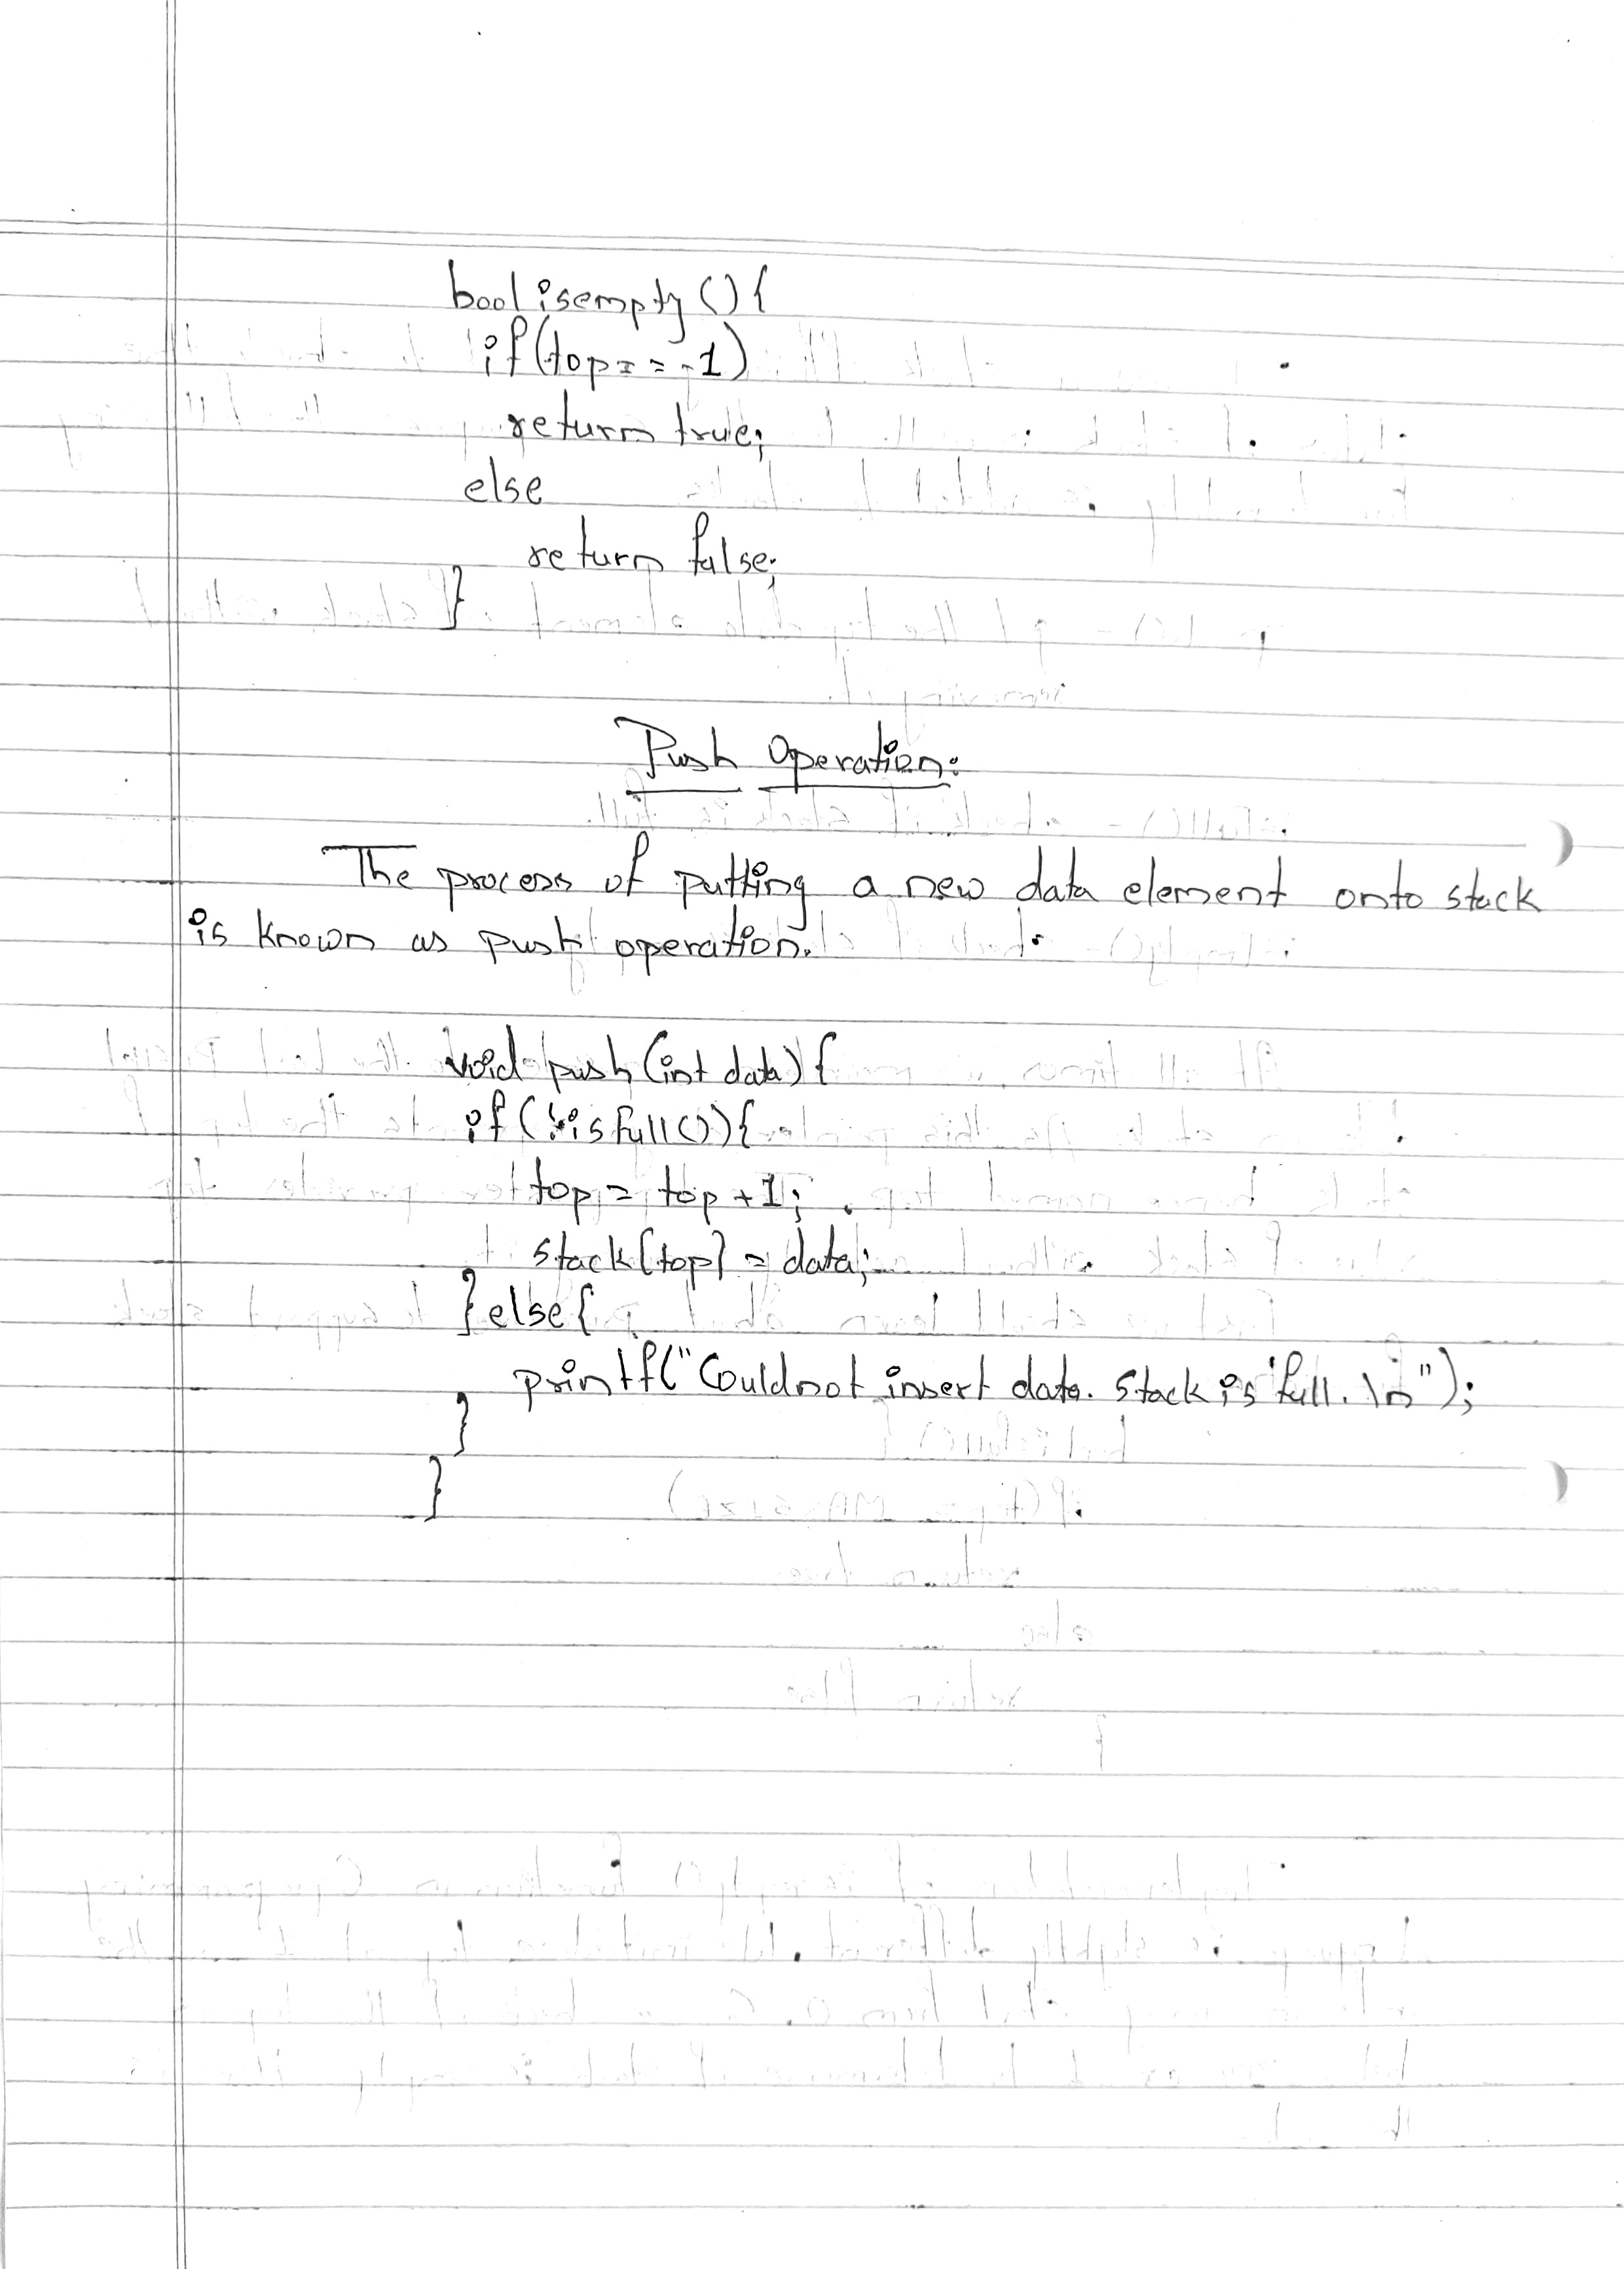 bool isempty () {
if(top == -1)
return true;
else
return false;
}
Push Operation:
The process of putting a new data element onto stack
is known as push operation.
void push (int data) {
if (!isfull()) {
top = top + 1;
stack[top] = data;
} else {
printf("Couldnot insert data. Stack is full. \n");
}
}